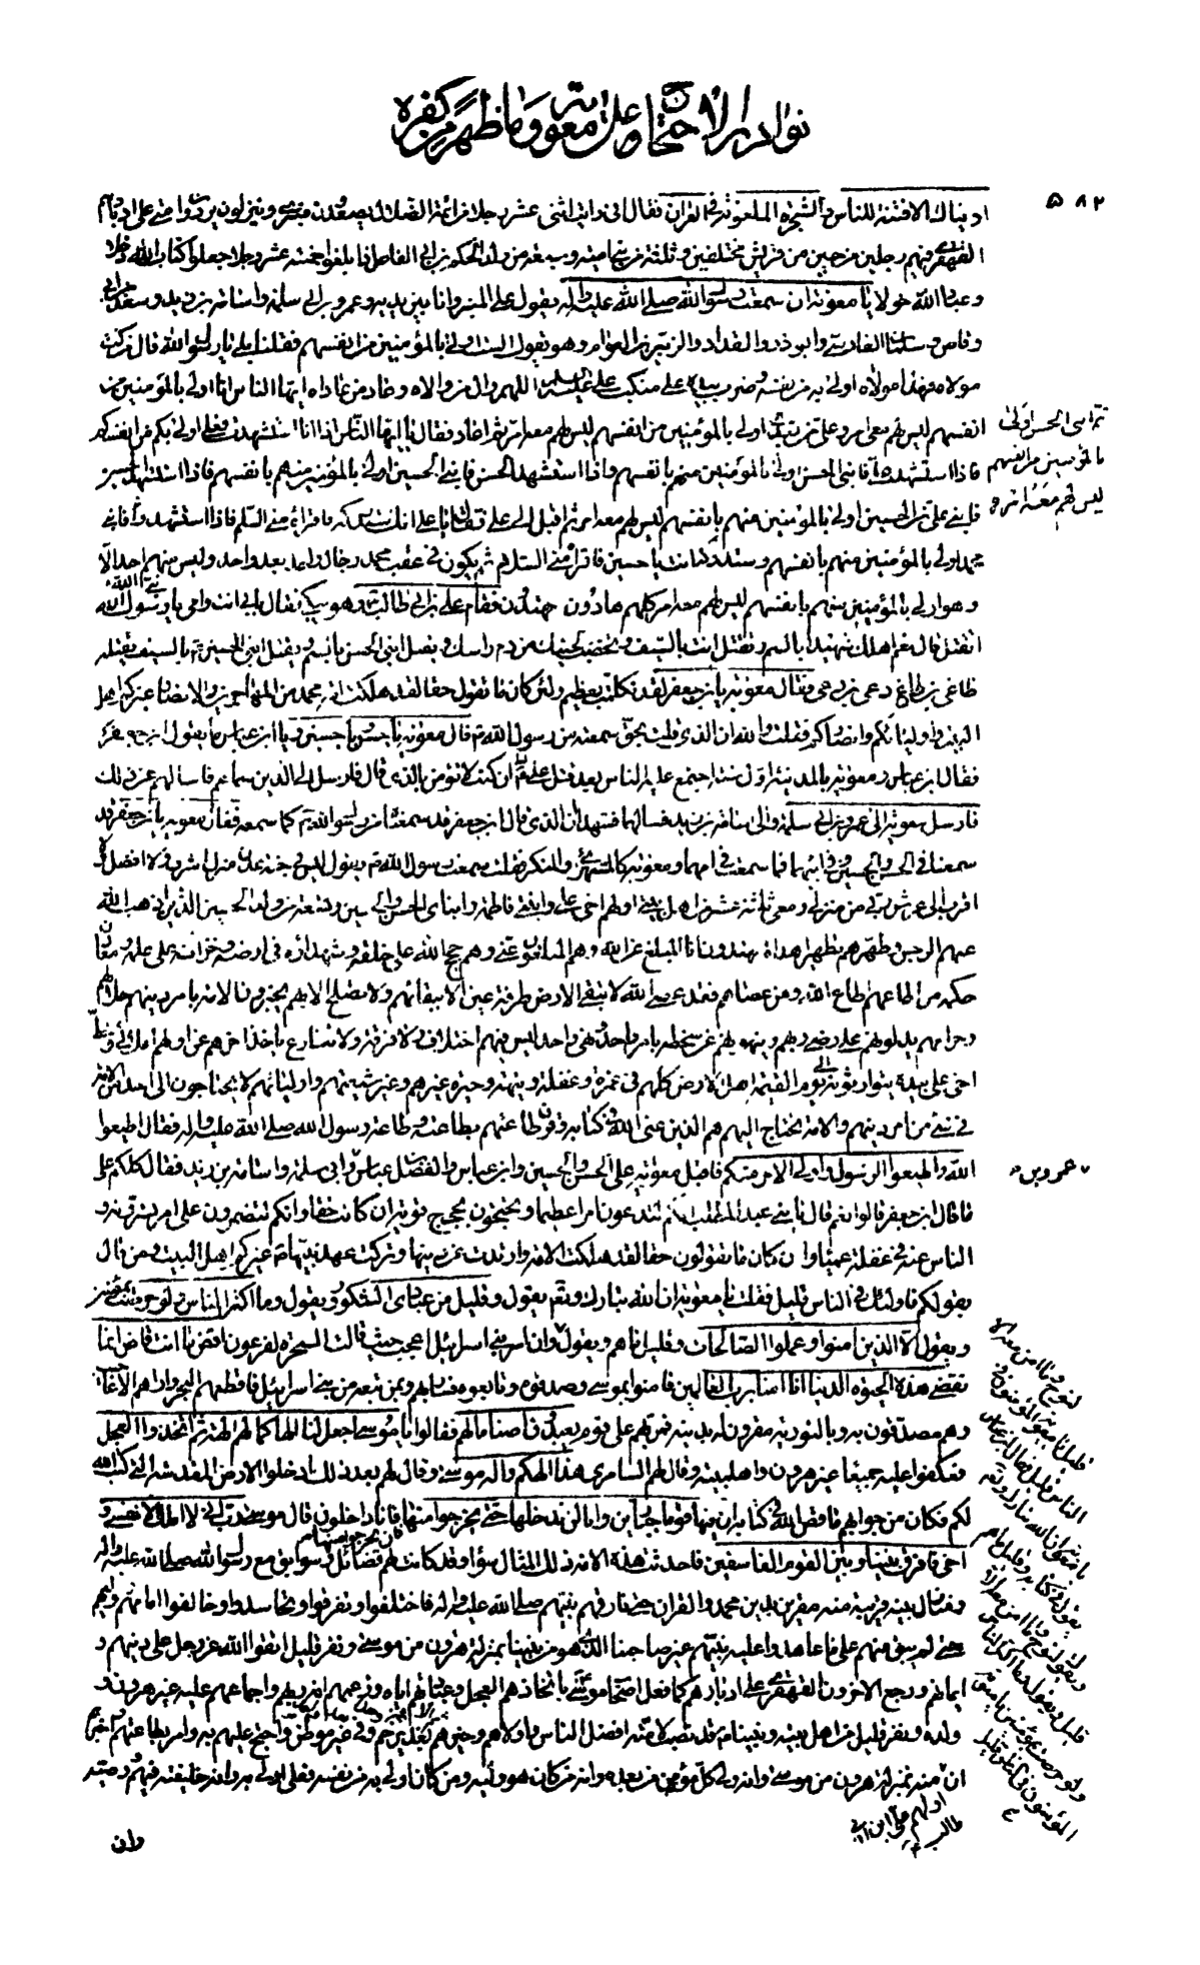 نوادر الاحتجاج على معوية وما ظهر من كفره
٥٨٢
اريناك الا فتنة للناس والشجرة الملعونة في القران فقال اني رايت اثنى عشر رجلا من ائمة الضلالة يصعدون منبري وينزلون يردون امتي على ادبارهم
القهقرى فيهم رجلين من حيين من قريش مختلفين وثلثة من بني امية وسبعة من ولد الحكم بن ابي العاص اذا بلغوا خمسة عشر رجلا جعلوا كتاب الله دخلا
وعباد الله خولا يا معوية ان سمعت رسول الله صلى الله عليه واله يقول على المنبر وانا بين يديه وعمرو بن ابي سلمة واسامة بن زيد وسعد بن ابي
وقاص وسلمان الفارسي وابو ذر والمقداد والزبير بن العوام وهو يقول الست اولى بالمؤمنين من انفسهم فقلنا بلى يا رسول الله قال من كنت
مولاه فهذا مولاه اولى به من نفسه وضرب بيده على منكب علي عليه السلم اللهم وال من والاه وعاد من عاداه ايها الناس انا اولى بالمؤمنين من
انفسهم ليس لهم معي امر وعلي من بعدي اولى بالمؤمنين من انفسهم ليس لهم معه امر ثم اعاد فقال يا ايها الناس اذا انا استشهدت فعلي اولى بكم من انفسكم
فاذا استشهد علي فابني الحسن اولى بالمؤمنين منهم بانفسهم واذا استشهد الحسن فابني الحسين اولى بالمؤمنين منهم بانفسهم فاذا استشهد الحسين
فابني علي بن الحسين اولى بالمؤمنين منهم بانفسهم ليس لهم معه امر ثم اقبل الى علي فقال يا علي انك ستدركه فاقرأه مني السلم فاذا استشهد فابني
محمد اولى بالمؤمنين منهم بانفسهم وستدركه انت يا حسين فاقرأه مني السلام ثم يكون في عقب محمد رجال واحد بعد واحد وليس منهم احد الا
وهو اولى بالمؤمنين منهم بانفسهم ليس لهم معه امر كلهم هادون مهتدون فقام علي بن ابي طالب وهو يبكي فقال بابي انت وامي يا رسول الله
اتقتل قال نعم اهلك شهيدا بالسم وتقتل انت بالسيف وتخضب لحيتك من دم راسك ويقتل ابني الحسن بالسم ويقتل ابني الحسين بالسيف يقتله
طاغي بن طاغ دعي بن دعي فقال معوية يا بن جعفر لقد تكلمت بعظيم ولئن كان ما تقول حقا لقد هلكت امة محمد من المهاجرين والانصار غيركم اهل
البيت واوليائكم وانصاركم فقلت والله ان الذي قلت بحق سمعته من رسول الله قال معوية يا حسن ويا حسين ويا ابن عباس ما يقول ابن جعفر
فقال ابن عباس ومعوية بالمدينة اول سنة اجتمع عليه الناس بعد قتل علي ان كنت لا تؤمن بالذي قال فارسل الى الذين سماهم فاسالهم عن ذلك
فارسل معوية الى عمرو بن ابي سلمة والى اسامة بن زيد فسالهما فشهدا ان الذي قال ابن جعفر قد سمعناه من رسول الله كما سمعه فقال معوية يا بن جعفر قد
سمعنا في الحسن والحسين وفي ابيهما فما سمعت في امهما ومعوية كالمستهزئ والمنكر فقلت سمعت رسول الله يقول ليس في جنة عدن منزل اشرف ولا افضل ولا
اقرب الى عرش ربي من منزلي ومعي ثلاثة عشر من اهل بيتي اولهم اخي علي وابنتي فاطمة وابناي الحسن والحسين وتسعة من ولد الحسين الذين اذهب الله
عنهم الرجس وطهرهم تطهيرا هداة مهتدون انا المبلغ عن الله وهم المبلغون عني وهم حجج الله على خلقه وشهداؤه في ارضه وخزانه على علمه ومعادن
حكمه من اطاعهم اطاع الله ومن عصاهم فقد عصى الله لا تبقى الارض طرفة عين الا ببقائهم ولا تصلح الا بهم يخبرون الامة بامر دينهم حلالهم
وحرامهم يدلونهم على رضى ربهم وينهونهم عن سخطه بامر واحد ونهي واحد ليس فيهم اختلاف ولا فرقة ولا تنازع ياخذ اخرهم عن اولهم املائي وخط
اخي علي بيده يتوارثونه الى يوم القيمة اهل الارض كلهم في غمرة وغفلة وتيهة وحيرة غيرهم وغير شيعتهم واوليائهم لا يحتاجون الى احد من الامة
في شئ من امر دينهم والامة تحتاج اليهم هم الذين عنى الله في كتابه وقرن طاعتهم بطاعته وطاعة رسول الله صلى الله عليه واله فقال اطيعوا
الله واطيعوا الرسول واولي الامر منكم فاقبل معوية على الحسن والحسين وابن عباس والفضل بن عباس وابي سلمة واسامة بن زيد فقال كلكم على
ما قال ابن جعفر قالوا نعم قال يا بني عبد المطلب انكم لتدعون امرا عظيما وتحتجون بحجج قوية ان كانت حقا وانكم لتضمرون على امر تسرونه و
الناس عنه في غفلة عمياء وان كان ما تقولون حقا لقد هلكت الامة وارتدت عن دينها وتركت عهد نبيها غيركم اهل البيت ومن قال
بقولكم فاولئك في الناس قليل فقلت يا معوية ان الله تبارك وتعالى يقول وقليل من عبادي الشكور ويقول وما اكثر الناس ولو حرصت بمؤمنين
ويقول الا الذين امنوا وعملوا الصالحات وقليل ما هم ويقول وان امر بني اسرائيل اعجب حيث قالت السحرة لفرعون اقض ما انت قاض انما
تقضي هذه الحيوة الدنيا انا امنا برب العالمين فامنوا بموسى وصدقوه وتابعوه فسار بهم وبمن تبعه من بني اسرائيل فاقطعهم البحر واراهم الاعاجيب
وهم مصدقون به وبالتورية مقرون له بدينه فمر بهم على قوم يعبدون اصناما لهم فقالوا يا موسى اجعل لنا الها كما لهم الهة ثم اتخذوا العجل
فعكفوا عليه جميعا غير هرون واهل بيته وقال لهم السامري هذا الهكم واله موسى وقال لهم بعد ذلك ادخلوا الارض المقدسة التي كتب الله
لكم فكان من جوابهم ما قص الله في كتابه ان فيها قوما جبارين وانا لن ندخلها حتى يخرجوا منها فان يخرجوا منها فانا داخلون قال موسى رب اني لا املك الا نفسي و
اخي فافرق بيننا وبين القوم الفاسقين فاحتذت هذه الامة ذلك المثال سواء وقد كانت لهم فضائل وسوابق مع رسول الله صلى الله عليه واله
ومنازل بينة قريبة منه مقرين بدين محمد والقران حتى فارقهم نبيهم صلى الله عليه واله فاختلفوا وتفرقوا وتحاسدوا وخالفوا امامهم ووليهم
حتى لم يبق منهم على ما عاهدوا عليه نبيهم غير صاحبنا الذي هو من نبينا بمنزلة هرون من موسى ونفر قليل اتقوا الله عز وجل على دينهم و
ايمانهم ورجع الاخرون القهقرى على ادبارهم كما فعل اصحاب موسى باتخاذهم العجل وعبادتهم اياه وزعمهم انه ربهم واجماعهم عليه غير هرون و
ولده ونفر قليل من اهل بيته ونبينا قد نصب لامته افضل الناس واولاهم وخيرهم بغدير خم وفي غير موطن واحتج عليهم به وامر بطاعتهم واخبرهم
ان منه بمنزلة هرون من موسى وانه ولي كل مؤمن من بعده وانه من كان هو وليه ومن كان اولى به من نفسه فعلي اولى به وانه خليفته فيهم ووصيه
وان
ثم ابني الحسن اولى
بالمؤمنين من انفسهم
ليس لهم معه امر
عمرو بن
اولهم علي ابن ابي
طالب